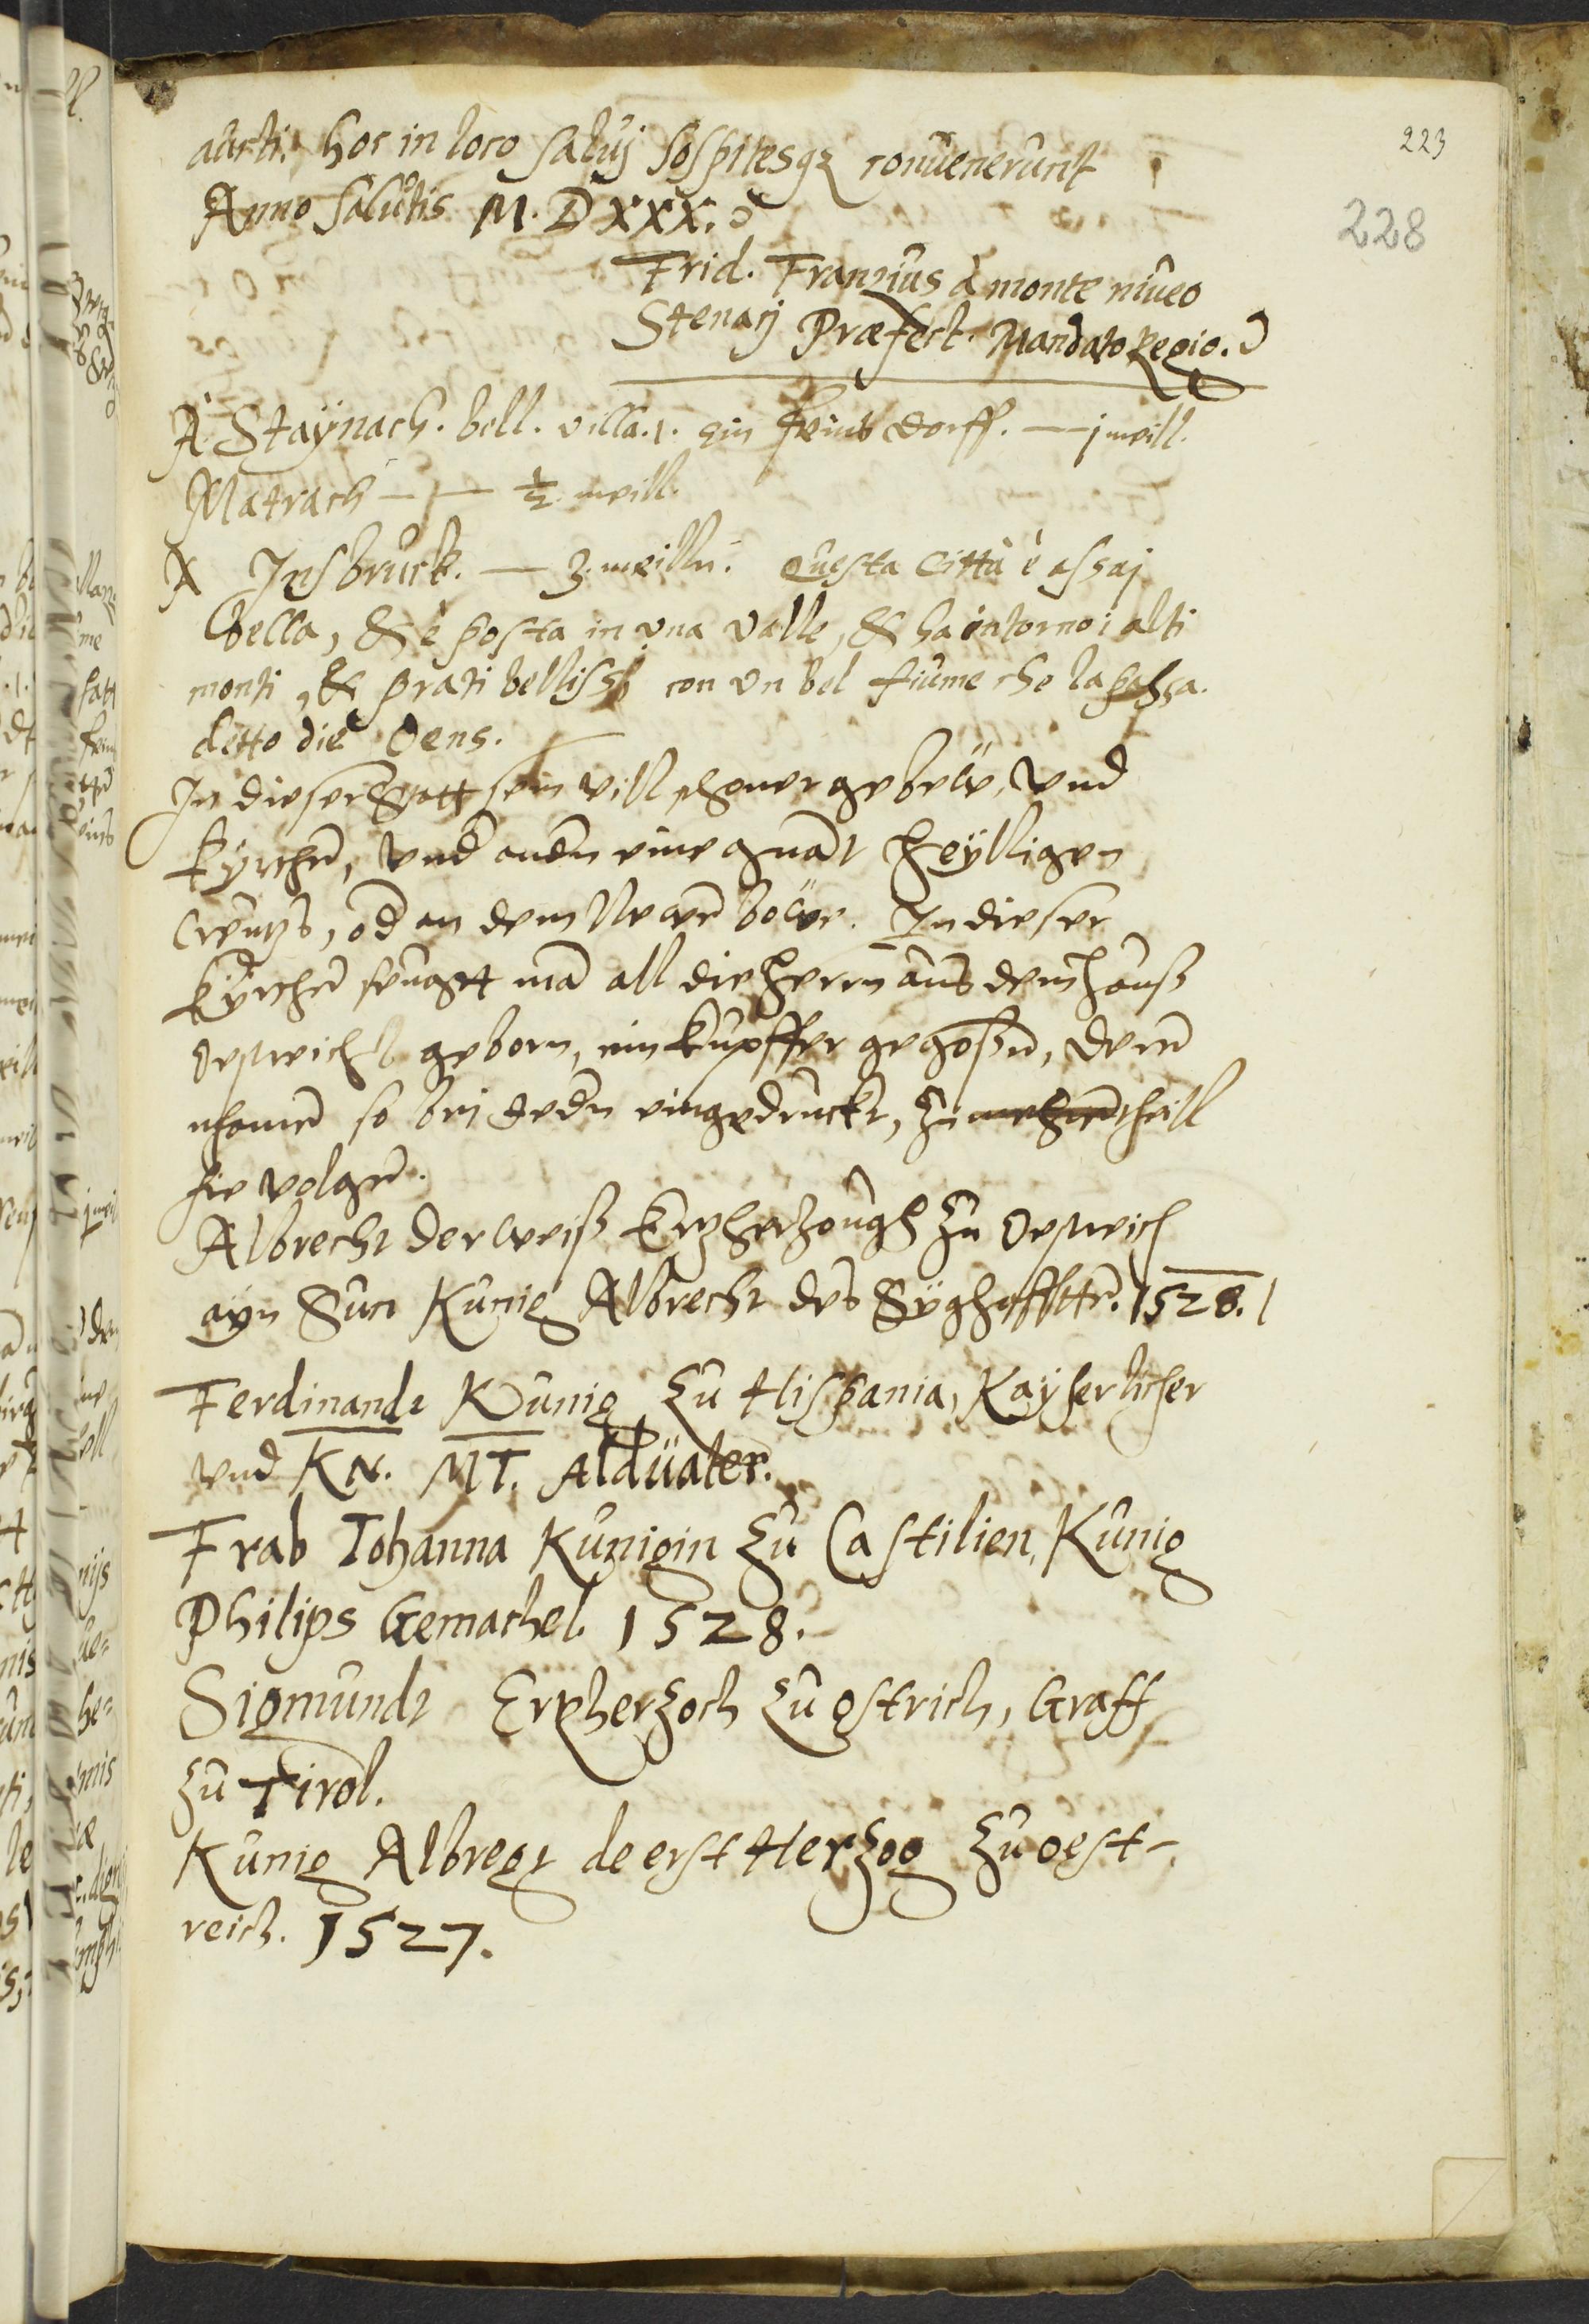 223
228
aucti. hoc in loco saluj sospitesqz conuenerunt
Anno Salutis M. D XXX.
Frid. Franzius à monte niueo
Stenarj Præfect. Mandato Regio.
A Staÿnach. bell. villa. 1. ein feins dorff. — j meill.
Matrach — — ½ meill.
A Insbruck. — 3. meilln. Questa Città è assaj
bella, & è posta in vna valle, & ha intorno i alti
monti, & prati belliss. con vn bel fiume che la passa.
detto die Oens.
In dieser Statt sein vill schoner gebew, vnd
kÿrchen, vnd andn eine gnant heÿlligen
Creutzs, od an dem Newen bowe. In dieser
kÿrchen sengtt man all die herrn aus dem hauss
Oestreichs geborn, ein kupffer gegossen, deren
nhamen so bei iedn eingedruckt, zu mehrentheill
hie volgen.
Albrecht der weiss Ertzhertzough zu Oestreich
aÿn Sun Kunig Albrecht des Sÿghafften. 1528.
Ferdinandt Kunig zu Hispania, Kaÿserlicher
vnd KN. MT. Aldüater.
Frab Johanna Kunigin zu Castilien, Kunig
Philips Gemachel. 1528.
Sigmundt Erzherzoch zu ostrich, Graff
zu Tirol.
Kunig Albregt de erst Herzog zu oest-
reich. 1527.